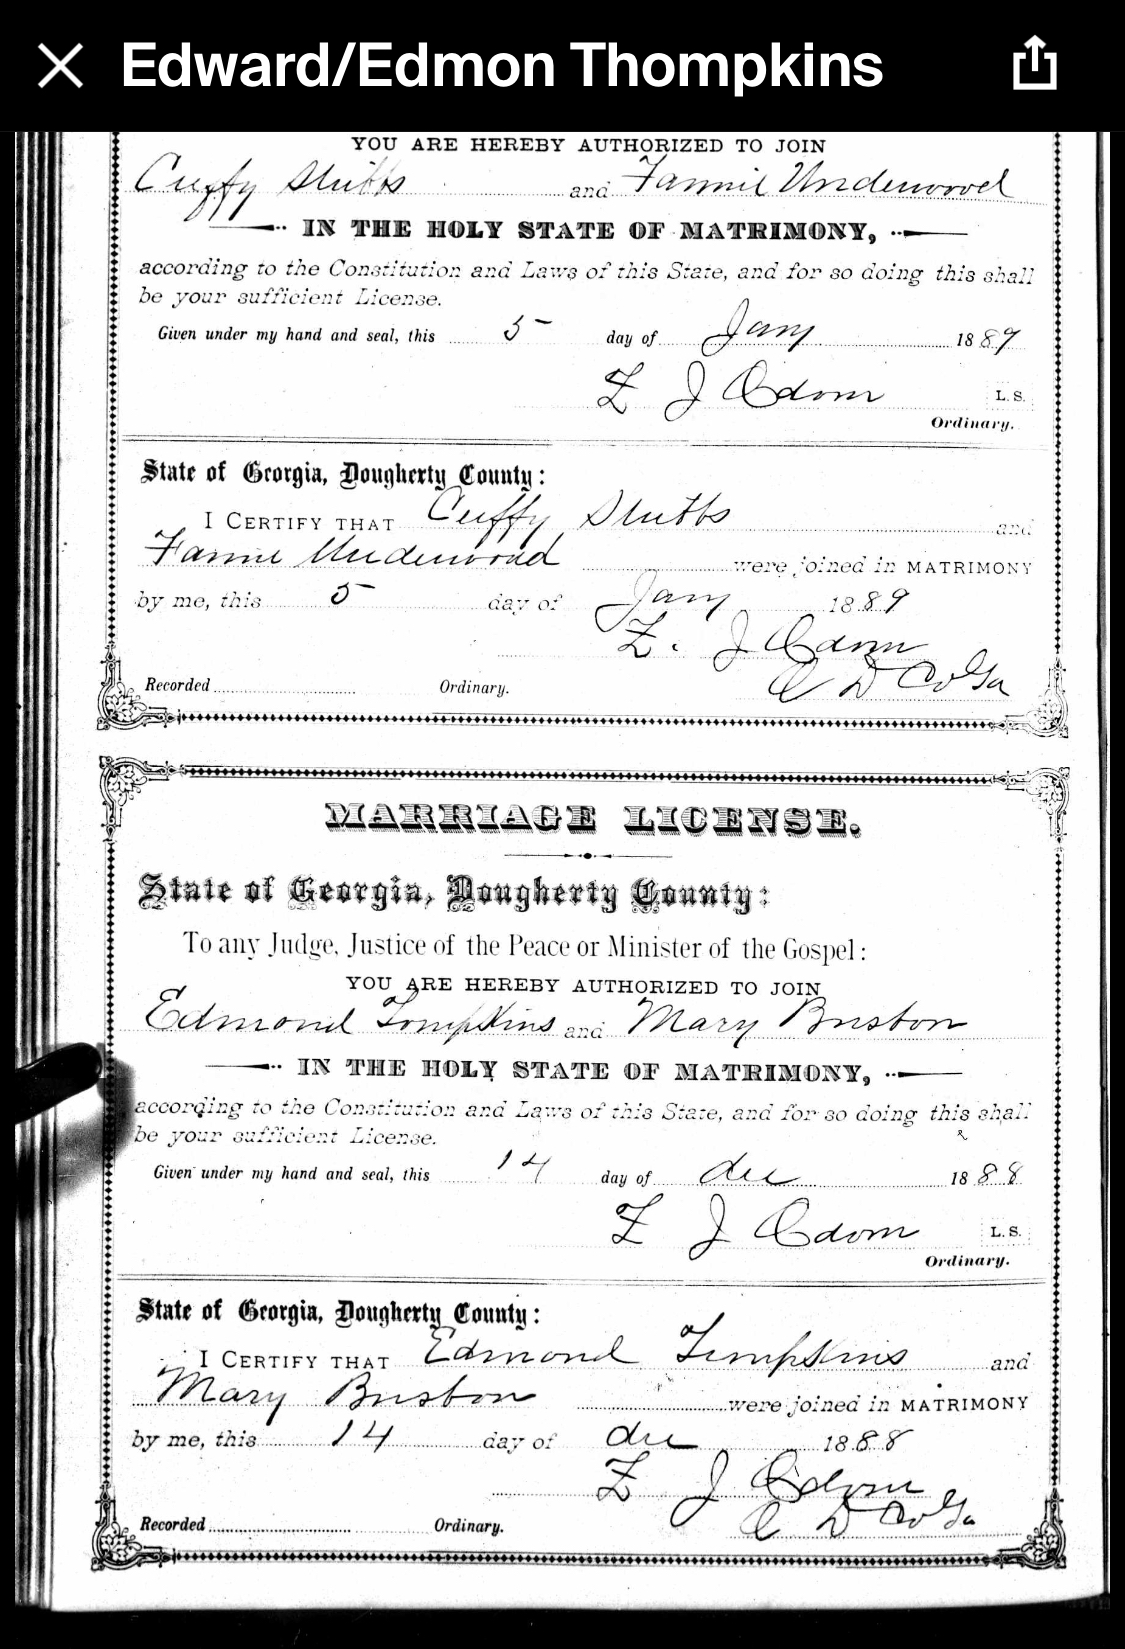 Edward/Edmon Thompkins
YOU ARE HEREBY AUTHORIZED TO JOIN
Cuffy Stubbs and Fannie Underwood
IN THE HOLY STATE OF MATRIMONY,
according to the Constitution and Laws of this State, and for so doing this shall
be your sufficient License.
Given under my hand and seal, this 5 day of Jany 1889
Z J Odom L. S.
Ordinary.
State of Georgia, Dougherty County:
I CERTIFY THAT Cuffy Stubbs and
Fannie Underwood were joined in MATRIMONY
by me, this 5 day of Jany 1889
Z. J Odom
Recorded Ordinary. O D Co Ga
MARRIAGE LICENSE.
State of Georgia, Dougherty County:
To any Judge, Justice of the Peace or Minister of the Gospel:
YOU ARE HEREBY AUTHORIZED TO JOIN
Edmond Tompkins and Mary Brisbon
IN THE HOLY STATE OF MATRIMONY,
according to the Constitution and Laws of this State, and for so doing this shall
be your sufficient License.
Given under my hand and seal, this 14 day of dec 1888
Z J Odom L. S.
Ordinary.
State of Georgia, Dougherty County:
I CERTIFY THAT Edmond Tompkins and
Mary Brisbon were joined in MATRIMONY
by me, this 14 day of dec 1888
Z J Odom
Recorded Ordinary. O D Co Ga